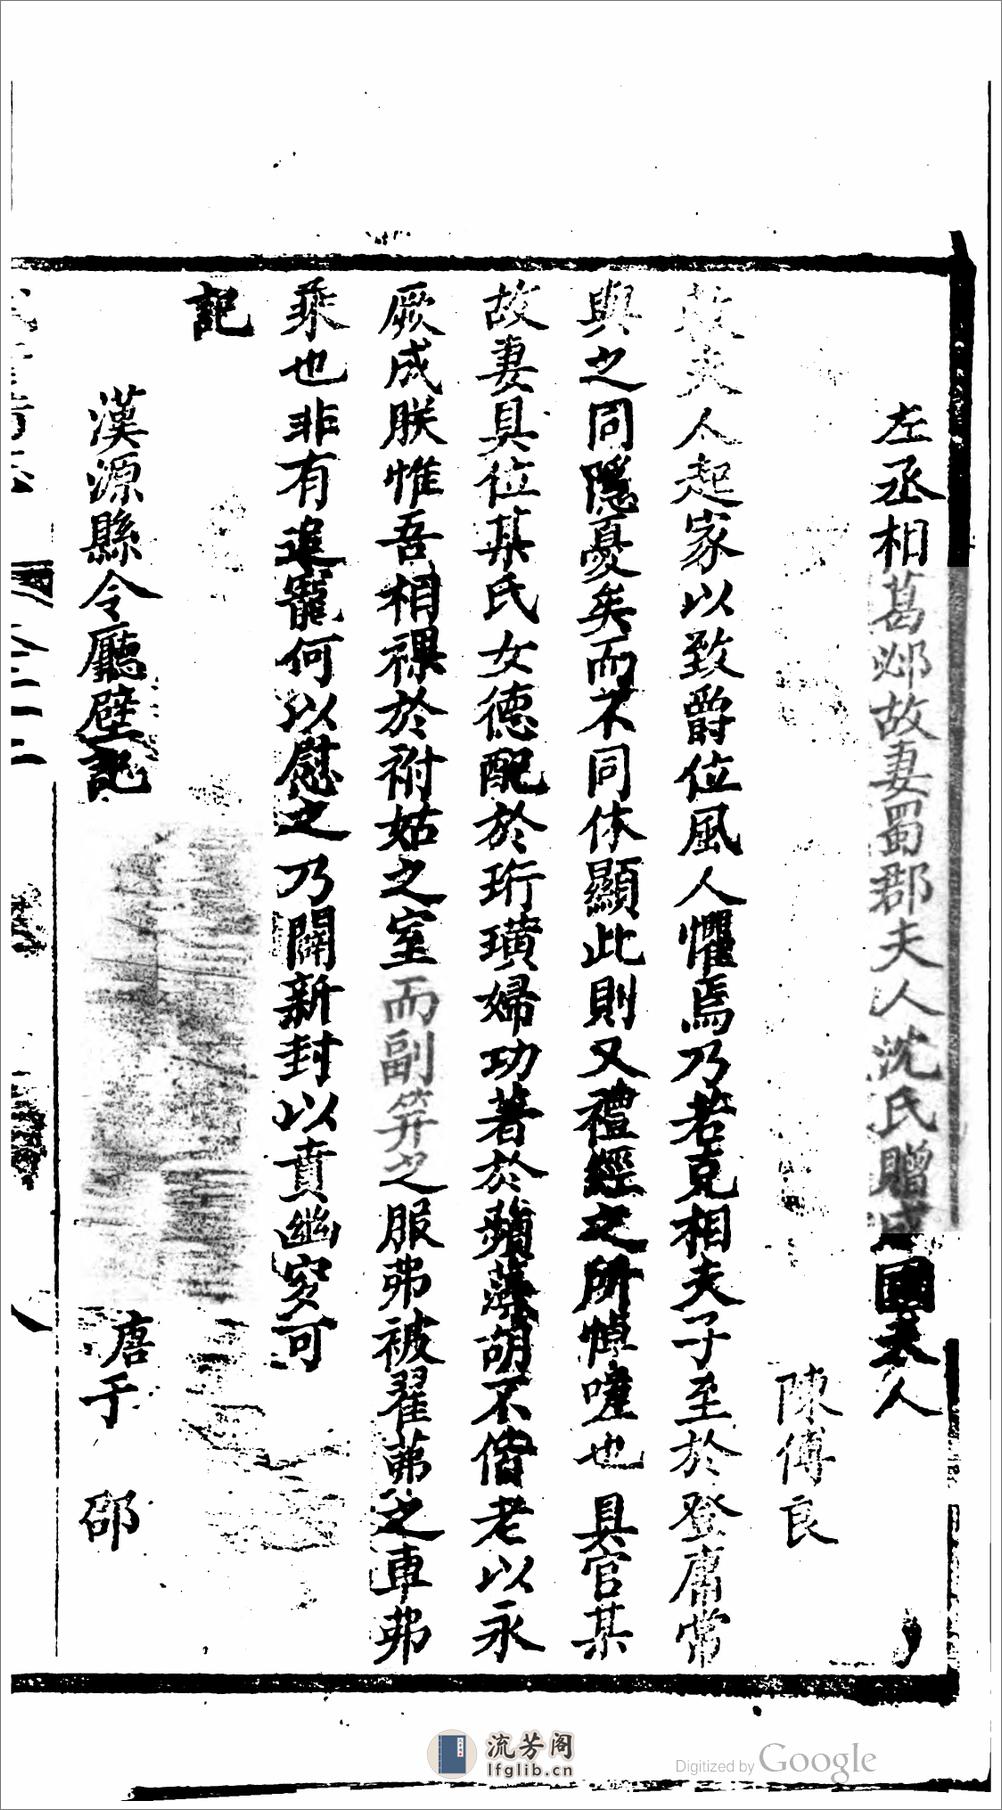 左丞相葛邲故妻蜀郡夫人沈氏贈成國夫人
陳傅良
故夫人起家以致爵位風人懼焉乃若克相夫子至於登庸常
與之同隱憂矣而不同休顯此則又禮經之所悼嗟也具官某
故妻具位某氏女德配於珩璜婦功著於蘋藻胡不偕老以永
厥成朕惟吾相祼於祔姑之室而副筓之服茀被翟茀之車茀
乘也非有追寵何以慰之乃闢新封以賁幽穸可
記
漢源縣令廳壁記
唐于邵
流芳阁
lfglib.cn
Digitized by Google